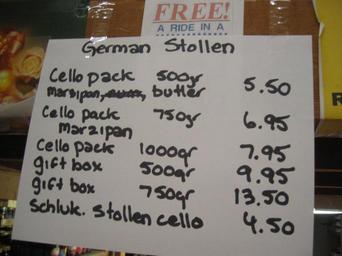 FREE!
A RIDE IN A
German Stollen
Cello pack 500gr 5.50
marzipan, butter
Cello pack 750gr 6.95
Marzipan
Cello pack 1000gr 7.95
gift box 500gr 9.95
gift box 750gr 13.50
Schluk. Stollen cello 4.50
R